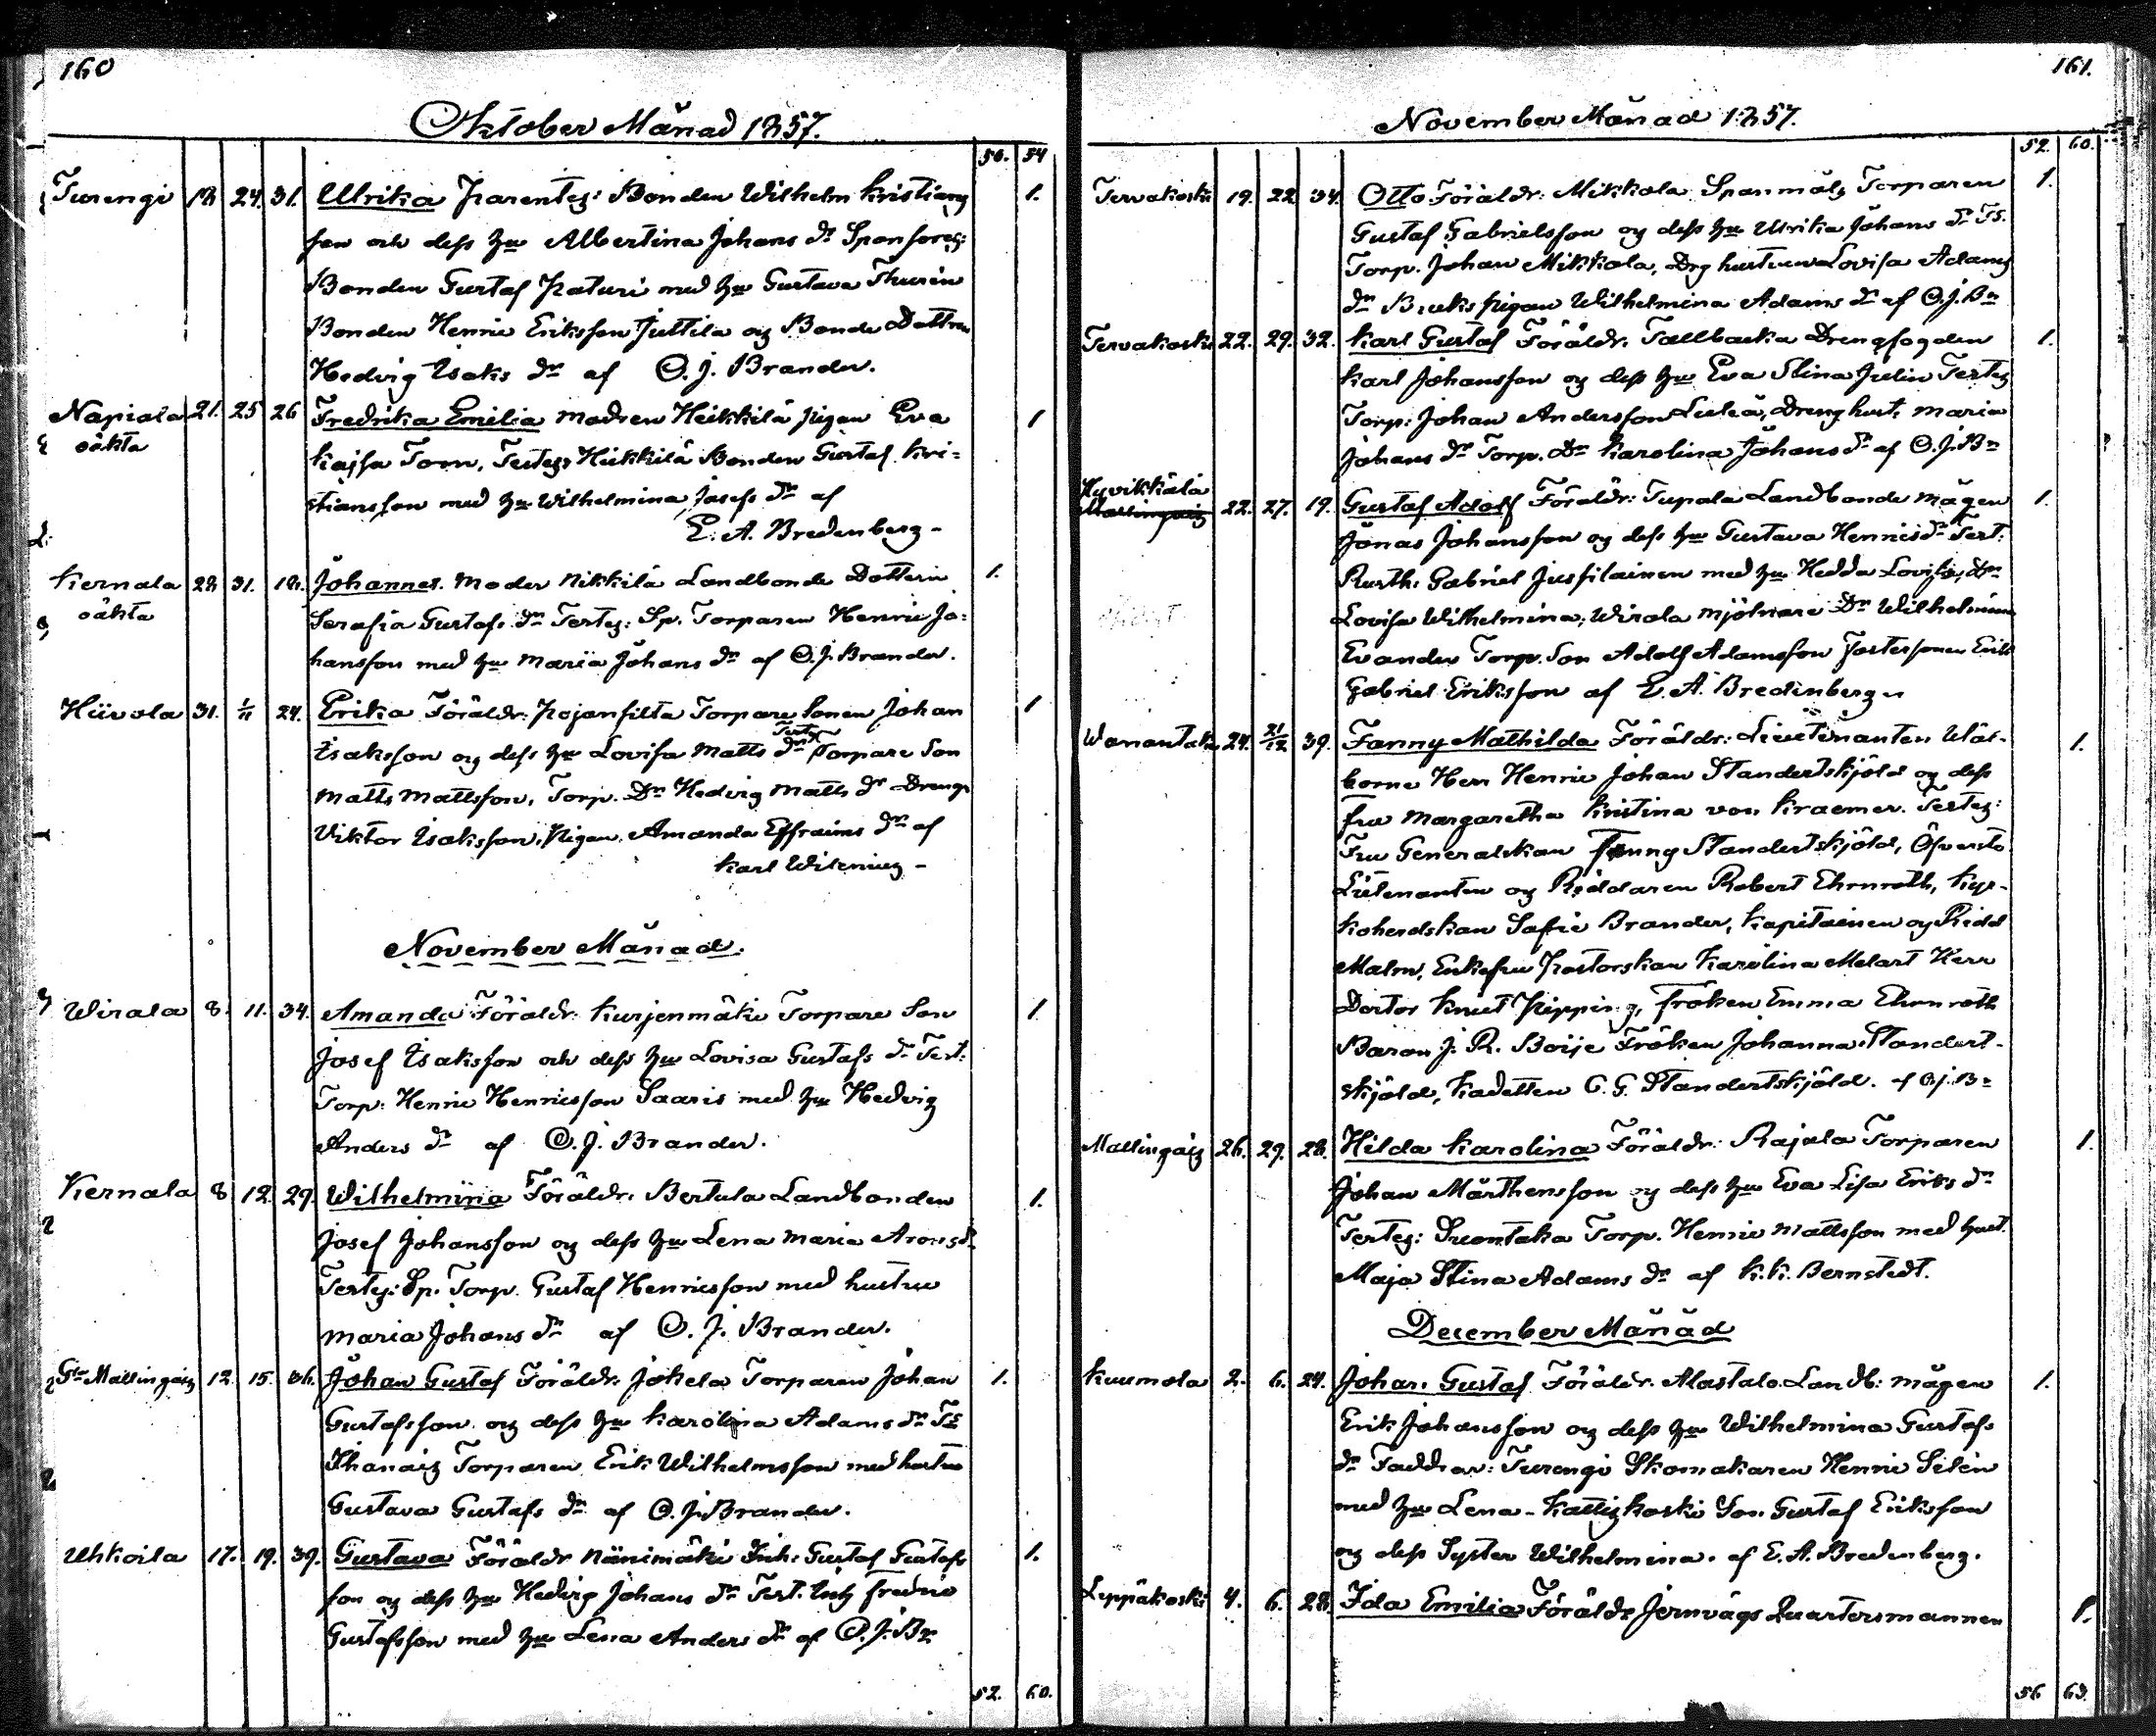 160
Oktober Månad 1857.
50. 54
Turengi 18 24. 31. Ulrika Parentes: Bonden Wilhelm Kristians
son och dess hu Albertina Johans dr Sponsores:
Bonden Gustaf Paturi med hu Gustava Thurén
Bonden Henric Eriksson Juttila og Bonde Dottren
Hedvig Isaks dr af O. J. Brander. 1.
Napiala 21. 25 26 Fredrika Emilia modren Heikkilä pigan Eva
oäkta Kajsa Torn, Testes Heikkilä Bonden Gustaf Kri=
stiansson med hu Wilhelmina Josefs dr af
E. A. Bredenberg - 1
Kernala 28 31. 18. Johannes. Moder Nikkilä Landbonde Dottern 1.
oäkta Serafia Gustafs dr Testes: Sp. Torparen Henric Jo=
hansson med hu Maria Johans dr af O. J. Brander.
Hiivola 31. 1/11 24. Erika Föräldr: Pojansilta Torpare Sonen Johan 1
Isaksson og dess hu Lovisa Matts dr Testes Torpare Son
Matts Mattsson, Torp. Dr Hedvig Matts dr Dreng
Viktor Isaksson, Pigan Amanda Effraims dr af
Karl Wilenius -
November Månad.
Wirala 8. 11. 34. Amanda Föräldr: Kurjenmäki Torpare Son 1
Josef Isaksson och dess hu Lovisa Gustafs dr Test:
Torp: Henric Henricsson Saaris med hu Hedvig
Anders dr af O. J. Brander.
Kernala 8 12. 29. Wilhelmina Föräldr: Bertula Landbonden 1.
Josef Johansson og dess hu Lena Maria Arons dr
Testes: Sp. Torp. Gustaf Henricsson med hustru
Maria Johans dr af O. J. Brander.
Gr Mallingais 12. 15. 36. Johan Gustaf Föräldr: Jokela Torparen Johan 1.
Gustafsson og dess hu Karolina Adams dr Ts
Torparen Erik Wilhelmsson med hustru
Gustava Gustafs dr af O. J. Brander.
Uhkoila 17. 19. 39. Gustava Föräldr Nänimäki Inh: Gustaf Gustafs 1.
son og dess hu Hedvig Johans dr Test. Inh Fredric
Gustafsson med hu Lena Anders dr af O. J. Br
52. 60.
161.
November Månad 1857.
52. 60.
Tervakoski 19. 22 34. Otto Föräldr: Mikkola Spanmåls Torparen 1.
Gustaf Gabrielsson og dess hu Ulrika Johans dr Ts.
Torp. Johan Mikkola, Drg hustrun Lovisa Adams
dr Bruks pigan Wilhelmina Adams dr af O. J. Br
Tervakoski 22. 29. 32. Karl Gustaf Föräldr: Tallbacka Drengfogden 1.
Karl Johansson og dess hu Eva Stina Julin Testes
Torp: Johan Andersson Luleä, Dreng hust. Maria
Johans dr Torp. Dr Karolina Johans dr af O. J. Br
Hyvikkälä
22. 27. 19. Gustaf Adolf Föräldr: Tupala Landbonde Mågen 1.
Jonas Johansson og dess hu Gustava Henrics dr Test:
Rusth: Gabriel Jussilainen med hu Hedda Lovisa, Dr
Lovisa Wilhelmina, Wirala Mjölnare Dr Wilhelmina
Evander Torp. Son Adolf Adamsson Fostersonen Erik
Gabriel Eriksson af E. A. Bredenberg
Wanantaka 24. 21/12 39. Fanny Mathilda Föräldr: Lieutenanten Wäl- 1.
borne Herr Henric Johan Standertskjöld og dess
fru Margaretha Kristina von Kraemer. Testes:
Fru Generalskan Fanny Standertskjöld, Öfverste
Lütenanten og Riddaren Robert Ehrnroth, Kyr-
koherdskan Sofie Brander, Kapitainen og Ridd
Malm, Enkefru Pastorskan Karolina Melart Herr
Doctor Knut Pipping, Fröken Emma Ehrnroth
Baron J. R. Boije Fröken Johanna Standert-
skjöld, Kadetten C. G. Standertskjöld. af O. J. Br
Mallingais 26. 29. 28. Hilda Karolina Föräldr: Rajala Torparen 1.
Johan Mårthensson og dess hu Eva Lisa Eriks dr
Testes: Suontaka Torp. Henric Mattsson med hust.
Maja Stina Adams dr af K. K. Bernstedt.
December Månad
Kuumola 2. 6. 24. Johan Gustaf Föräldr: Alastalo Landb: Mågen 1.
Erik Johansson og dess hu Wilhelmina Gustafs
dr Faddrar: Turengi Skomakaren Henric Selin
med hu Lena - Kattiskoski Son Gustaf Eriksson
og dess Syster Wilhelmina. af E. A. Bredenberg.
Leppäkoski 4. 6. 28. Ida Emilia Föräldr Jernvägs Quartersmannen 1.
56 63.